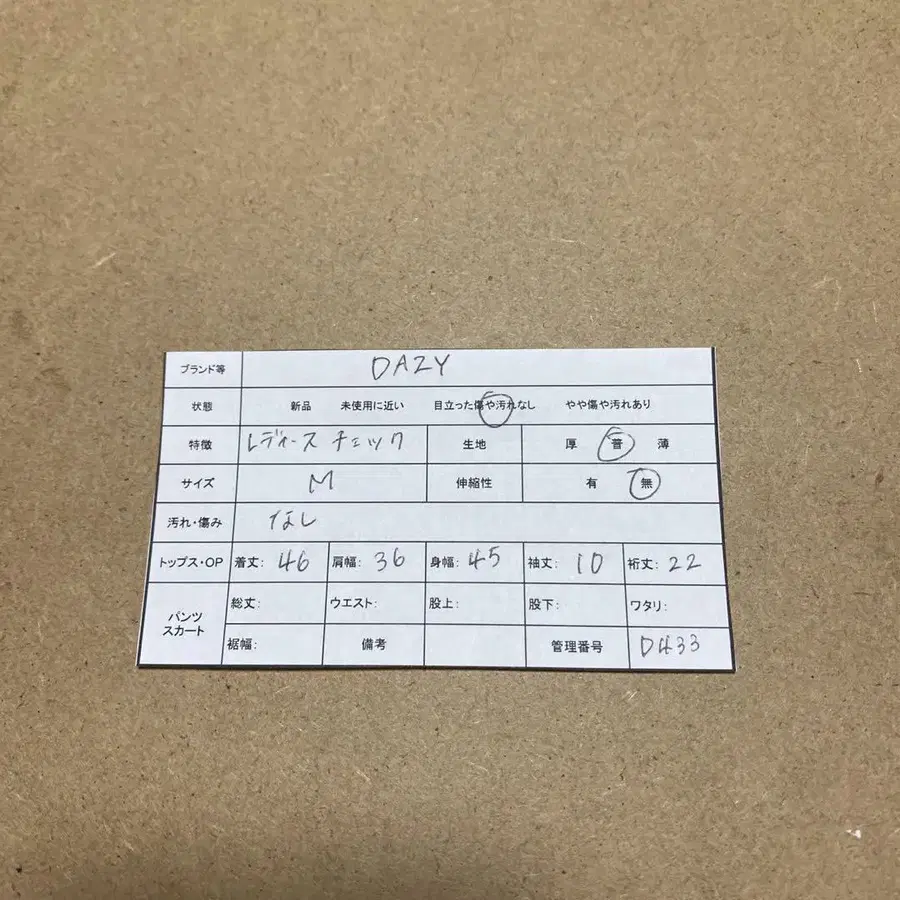 ブランド等 DAZY
状態 新品 未使用に近い 目立った傷や汚れなし やや傷や汚れあり
特徴 レディース チェック 生地 厚 普 薄
サイズ M 伸縮性 有 無
汚れ・傷み なし
トップス・OP 着丈: 46 肩幅: 36 身幅: 45 袖丈: 10 裄丈: 22
パンツ スカート 総丈: ウエスト: 股上: 股下: ワタリ:
裾幅: 備考 管理番号 D433